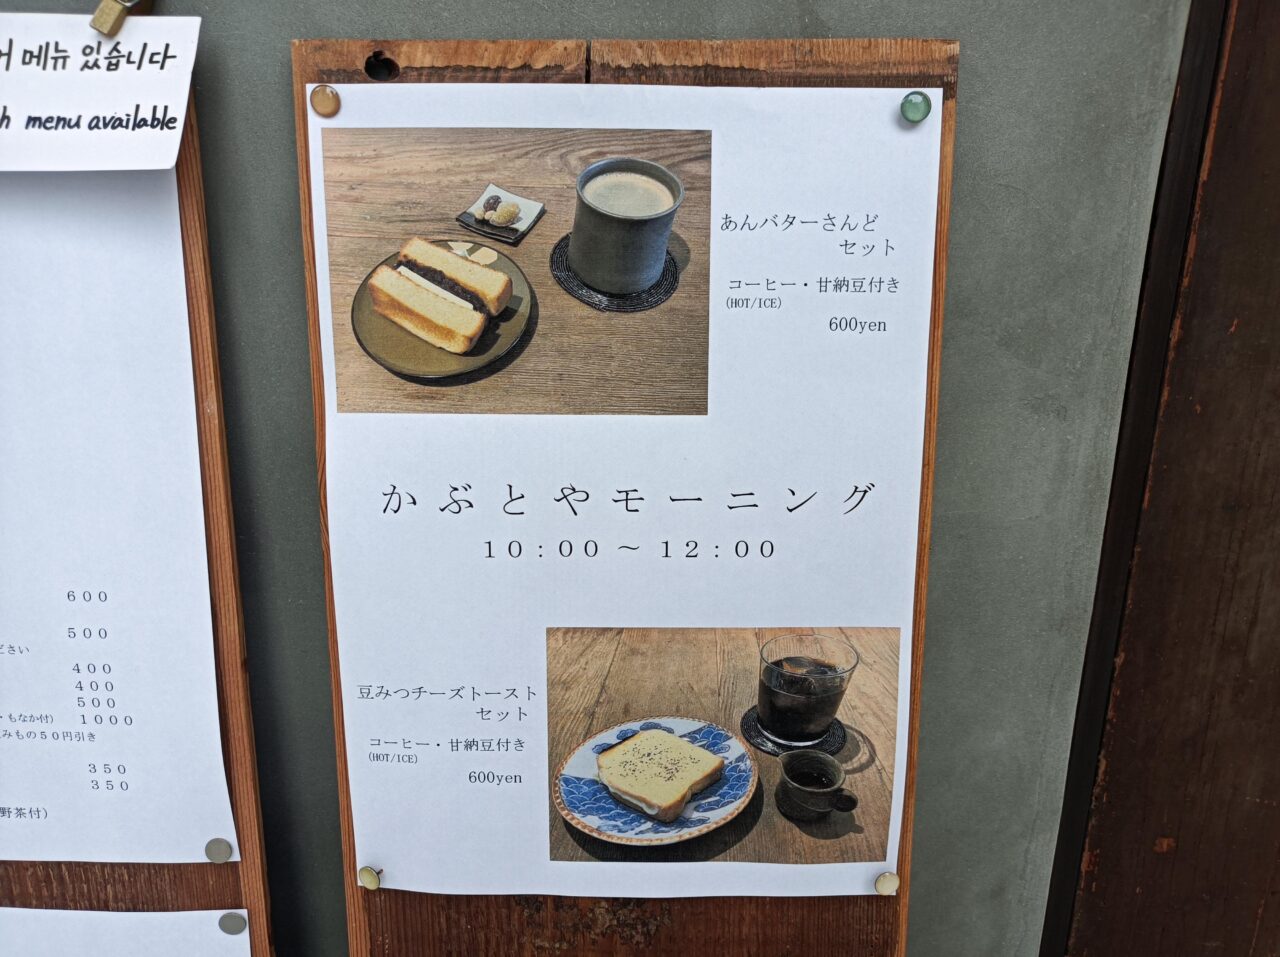 메뉴 있습니다
menu available
600
500
ださい
400
400
500
・もなか付) 1000
みもの50円引き
350
350
野茶付)
あんバターさんど
セット
コーヒー・甘納豆付き
(HOT/ICE)
600yen
かぶとやモーニング
10:00～12:00
豆みつチーズトースト
セット
コーヒー・甘納豆付き
(HOT/ICE)
600yen